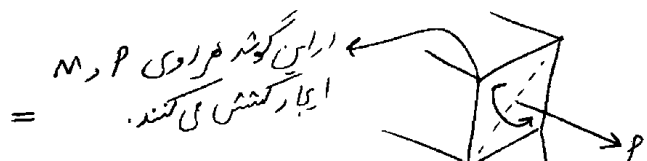 در این گوشه هر دوی P و M
ایجاد کشش می کنند.
=
P